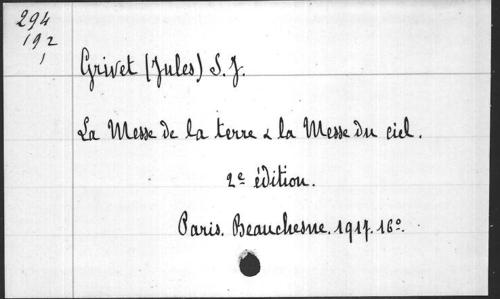 294
192
1
Grivet (Jules) S. J.
La Messe de la terre & la Messe du ciel.
2e édition.
Paris. Beauchesne. 1917. 16o.